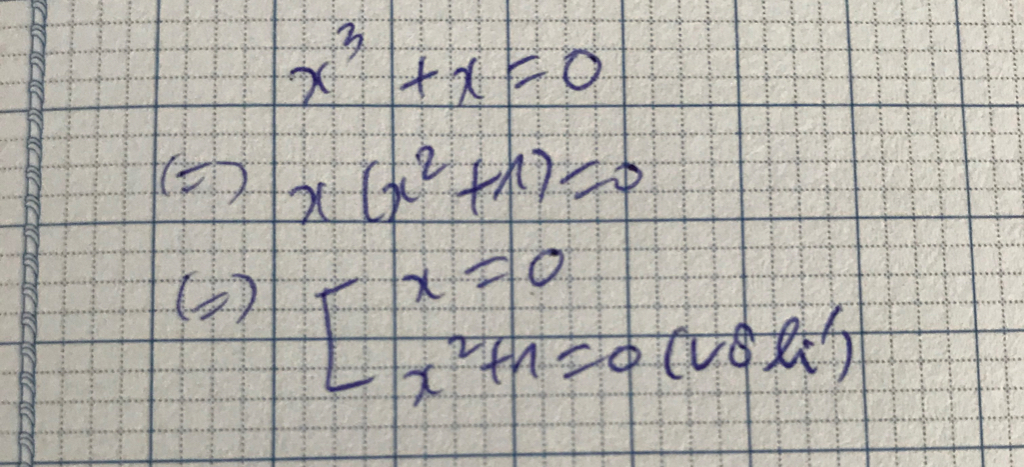 x³ + x = 0
(=) x (x² + 1) = 0
(=) [ x = 0
x² + 1 = 0 (vô lí)